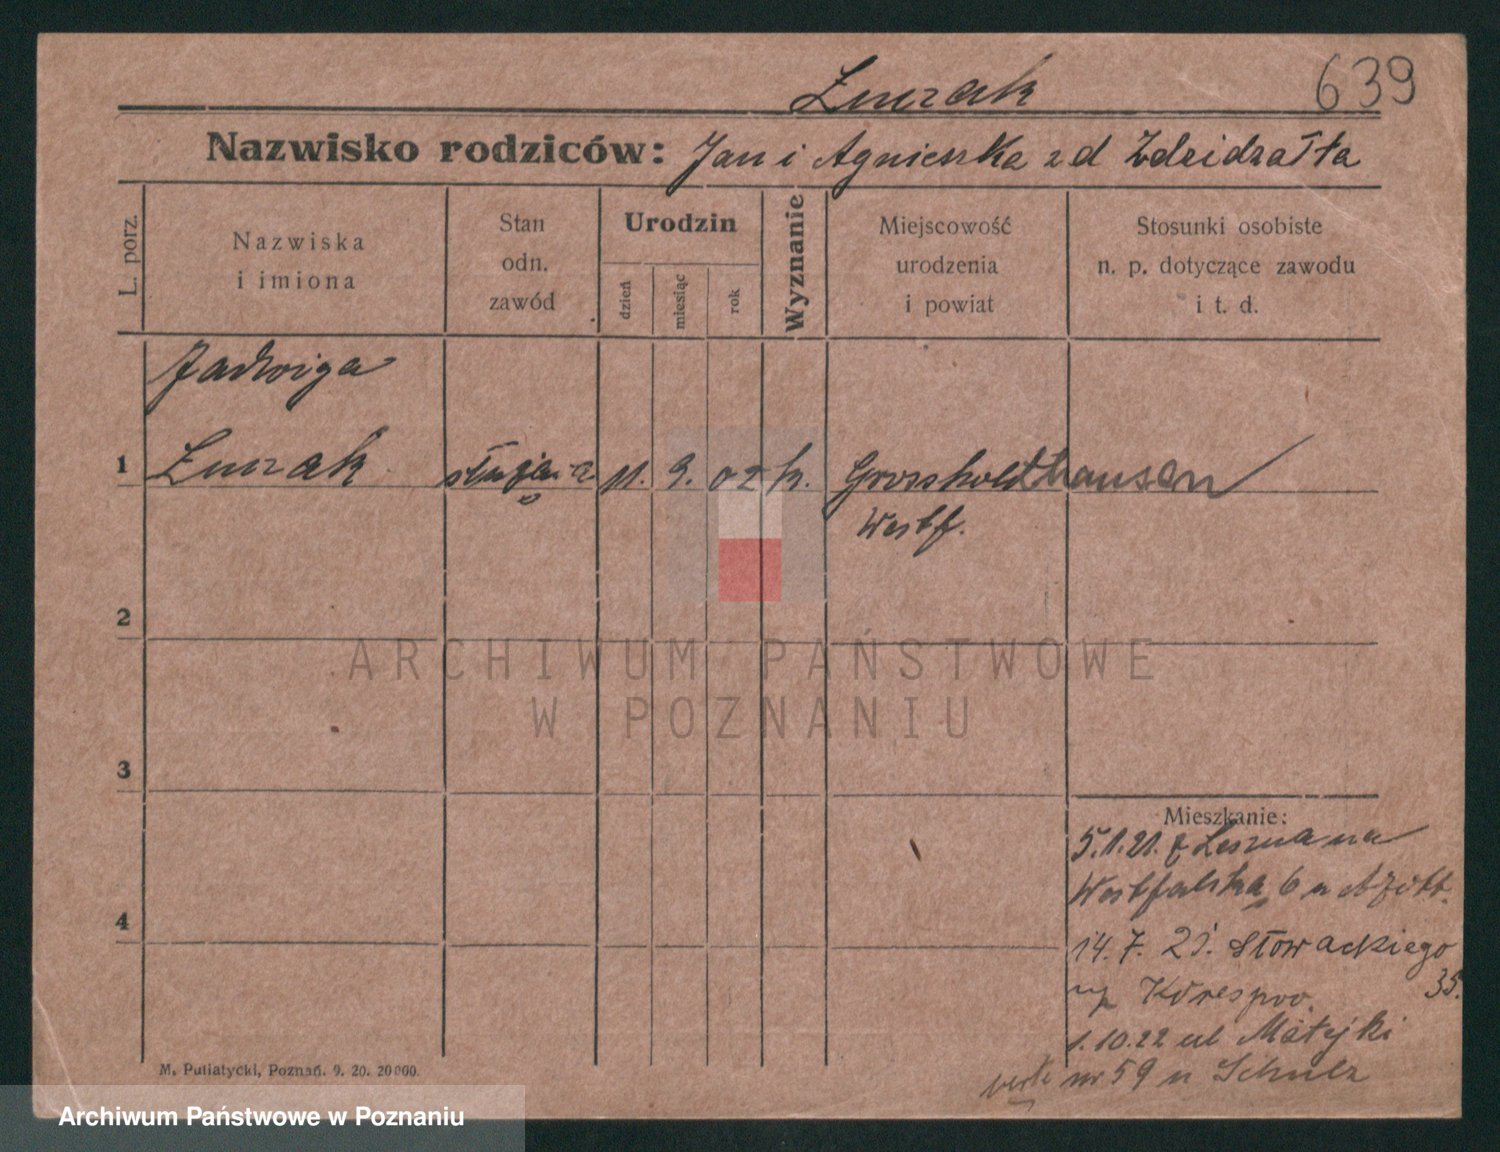 639
Nazwisko rodziców: Jan i Agnieszka z d Zdzidzałła
L. porz.
Nazwiska i imiona
Stan odn. zawód
Urodzin
dzień
miesiąc
rok
Wyznanie
Miejscowość urodzenia i powiat
Stosunki osobiste n. p. dotyczące zawodu i t. d.
Jadwiga
1
służąca 11. 9. 02 k.
Westf.
2
ARCHIWUM PAŃSTWOWE
W POZNANIU
3
Mieszkanie:
5.1.21. z Leszna na
4
14. 7. 21. Słowackiego
35.
1.10.22 ul Matejki
nr 59 u Schulz
M. Putiatycki, Poznań. 9. 20. 20000.
Archiwum Państwowe w Poznaniu